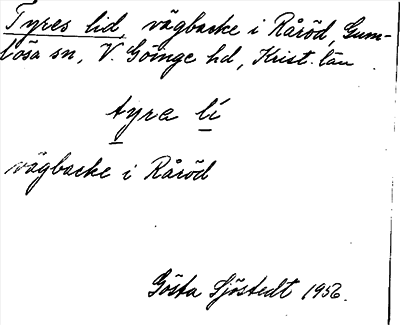 Tyres lid, vägbacke i Råröd, Gum-
lösa sn, V. Göinge hd, Krist. län.
tyra lí
vägbacke i Råröd
Gösta Sjöstedt 1956.